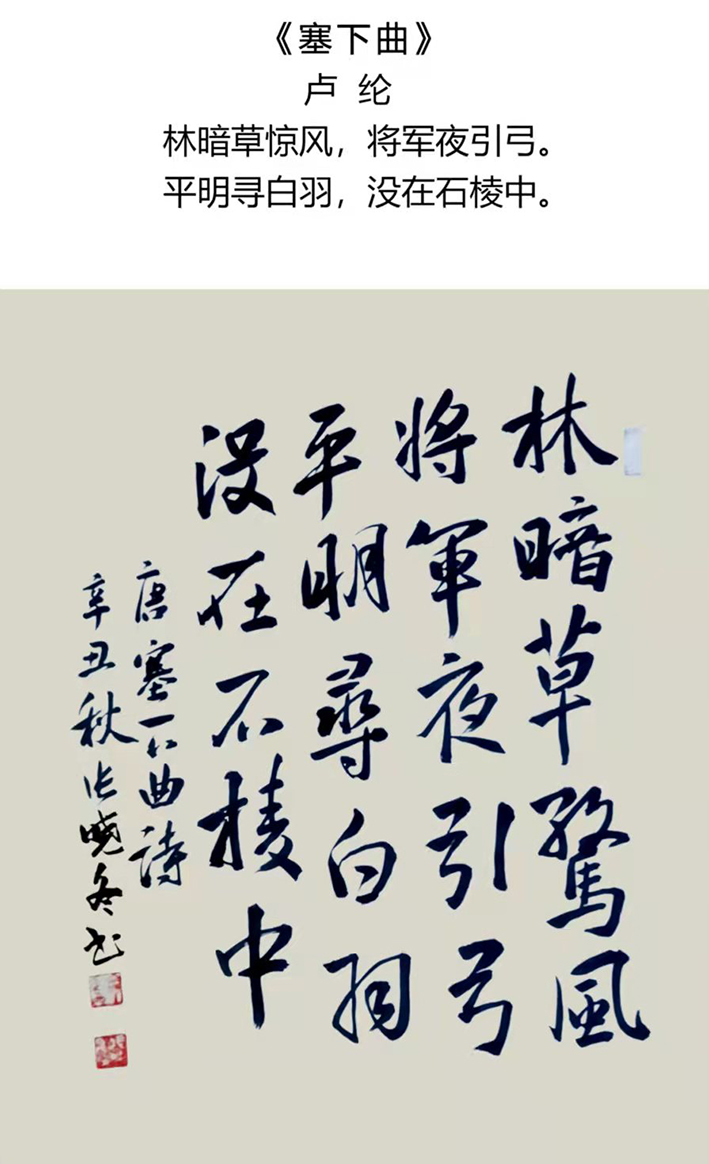 《塞下曲》
卢 纶
林暗草惊风，将军夜引弓。
平明寻白羽，没在石棱中。
林暗草驚風
将軍夜引弓
平明尋白羽
没在石棱中
唐塞下曲詩
辛丑秋张晓冬书